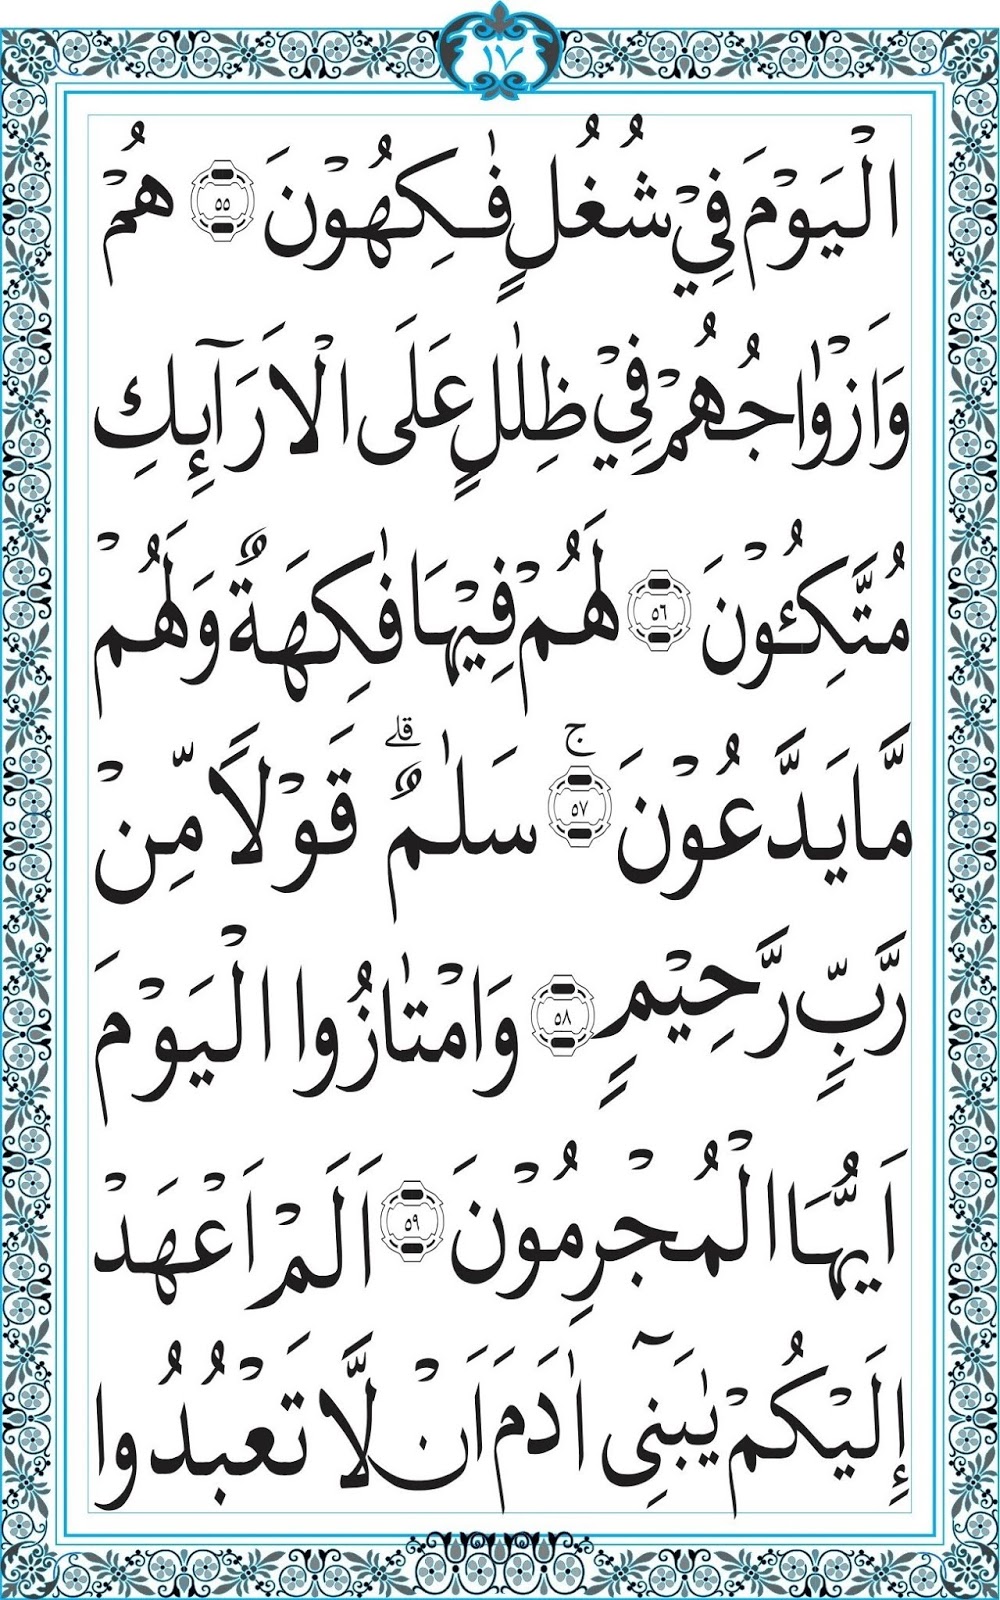 ١٧
الْيَوْمَ فِيْ شُغُلٍ فٰكِهُوْنَ ۝٥٥ هُمْ
وَاَزْوٰاجُهُمْ فِيْ ظِلٰلٍ عَلَى الْاَرَآىِٕكِ
مُتَّكِـُٔوْنَ ۝٥٦ لَهُمْ فِيْهَا فٰكِهَةٌ وَلَهُمْ
مَّا يَدَّعُوْنَ ۝٥٧ۚ سَلٰمٌۗ قَوْلًا مِّنْ
رَّبٍّ رَّحِيْمٍ ۝٥٨ وَامْتٰازُوا الْيَوْمَ
اَيُّهَا الْمُجْرِمُوْنَ ۝٥٩ اَلَمْ اَعْهَدْ
اِلَيْكُمْ يٰبَنِىٓ اٰدَمَ اَنْ لَّا تَعْبُدُوا